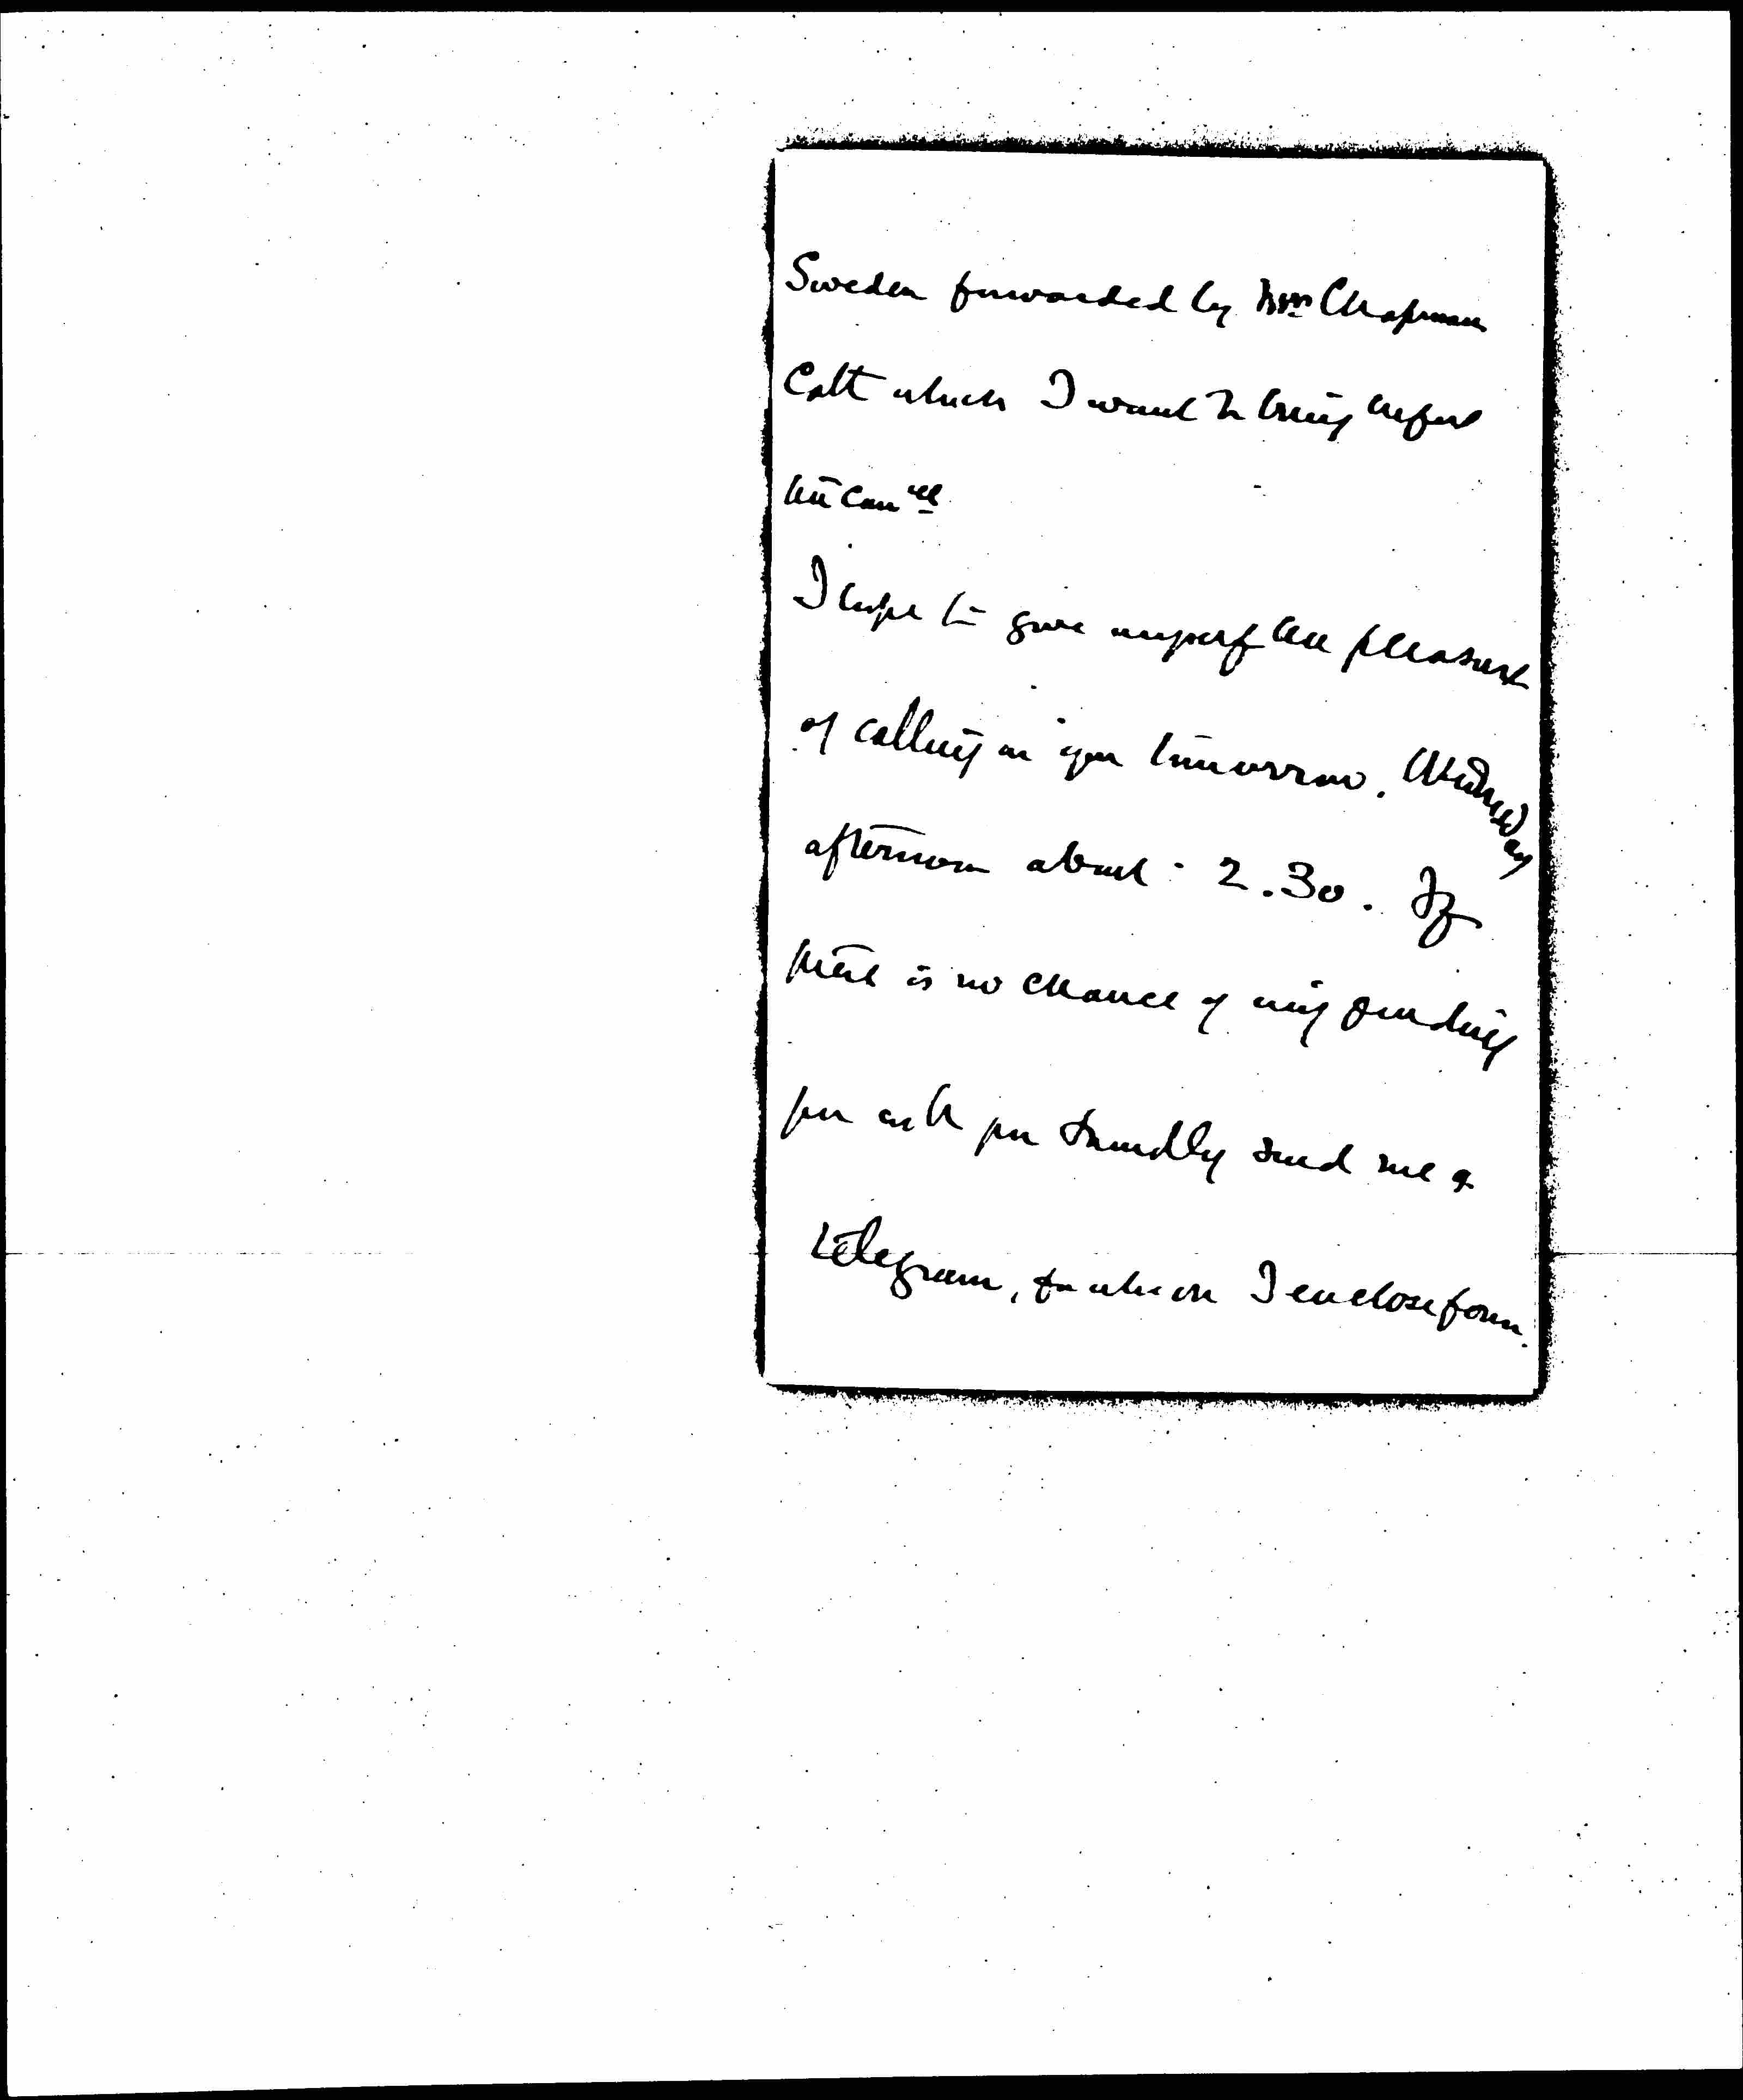 Sweden forwarded by Mrs Chapman
Catt which I want to bring before
the Com tee
I hope to give myself the pleasure
of calling on you tomorrow. Wednesday
afternoon about 2.30. If
there is no chance of my finding
you will you kindly send me a
telegram, for which I enclose form.